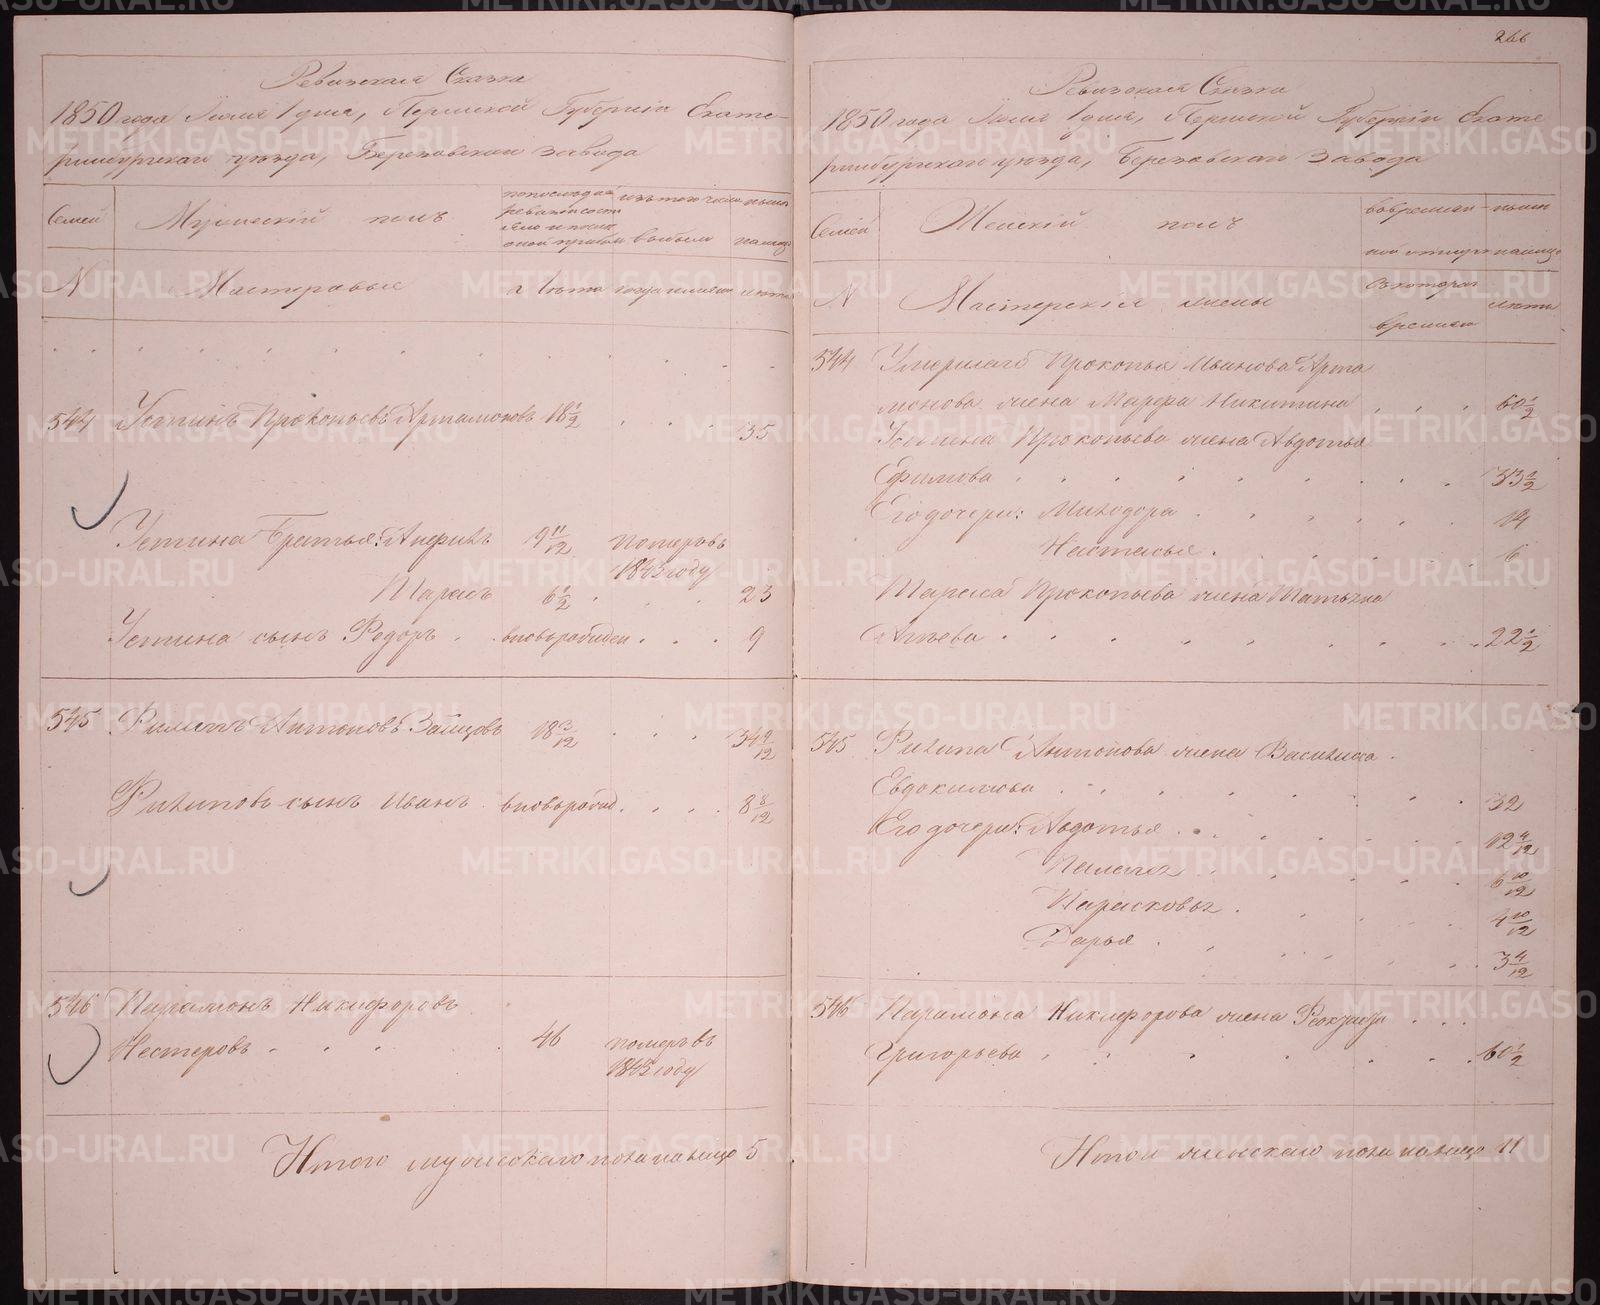 Ревизская Сказка
1850 года Июля 1 дня, Пермской Губерніи Екате-
ринбургскаго уезда, Березовскаго завода
Семей
Мужескій полъ
N
Мастеровые
Лета
лета
544 Устинъ Прокопьевъ Артамоновъ 18 1/2 35
Устина Братья: Анфимъ 9 11/12 померъ въ
1843 году
Тарасъ 6 1/2 23
Устина сынъ Федоръ вновьрожден 9
545 Филипъ Антоновъ Зайцовъ 18 3/12 34 9/12
Филиповъ сынъ Иванъ вновьрожд. 8 8/12
546 Парамонъ Никифоровъ
Нестеровъ 46 померъ въ
1845 году
Итого мужескаго пола налицо 5
266
Ревизская Сказка
1850 года Июля 1 дня, Пермской Губерніи Екате
ринбургскаго уезда, Березовскаго завода
Семей
Женскій полъ
N
Мастерскія жены
въ которое
времени
лета
544 Умершаго Прокопья Иванова Арта
монова жена Марфа Никитина 60 1/2
Устина Прокопьева жена Авдотья
Ефимова 33 1/2
Его дочери: Минодора 14
Настасья 6
Тараса Прокопьева жена Татьяна
22 1/2
545 Филипа Антонова жена Василиса
Евдокимова 32
Его дочери: Авдотья 12 4/12
Пелагея 6 10/12
Парасковья 4 10/12
Дарья 3 4/12
546 Парамона Никифорова жена
Григорьева 60 1/2
Итого женскаго пола налицо 11
METRIKI.GASO-URAL.RU